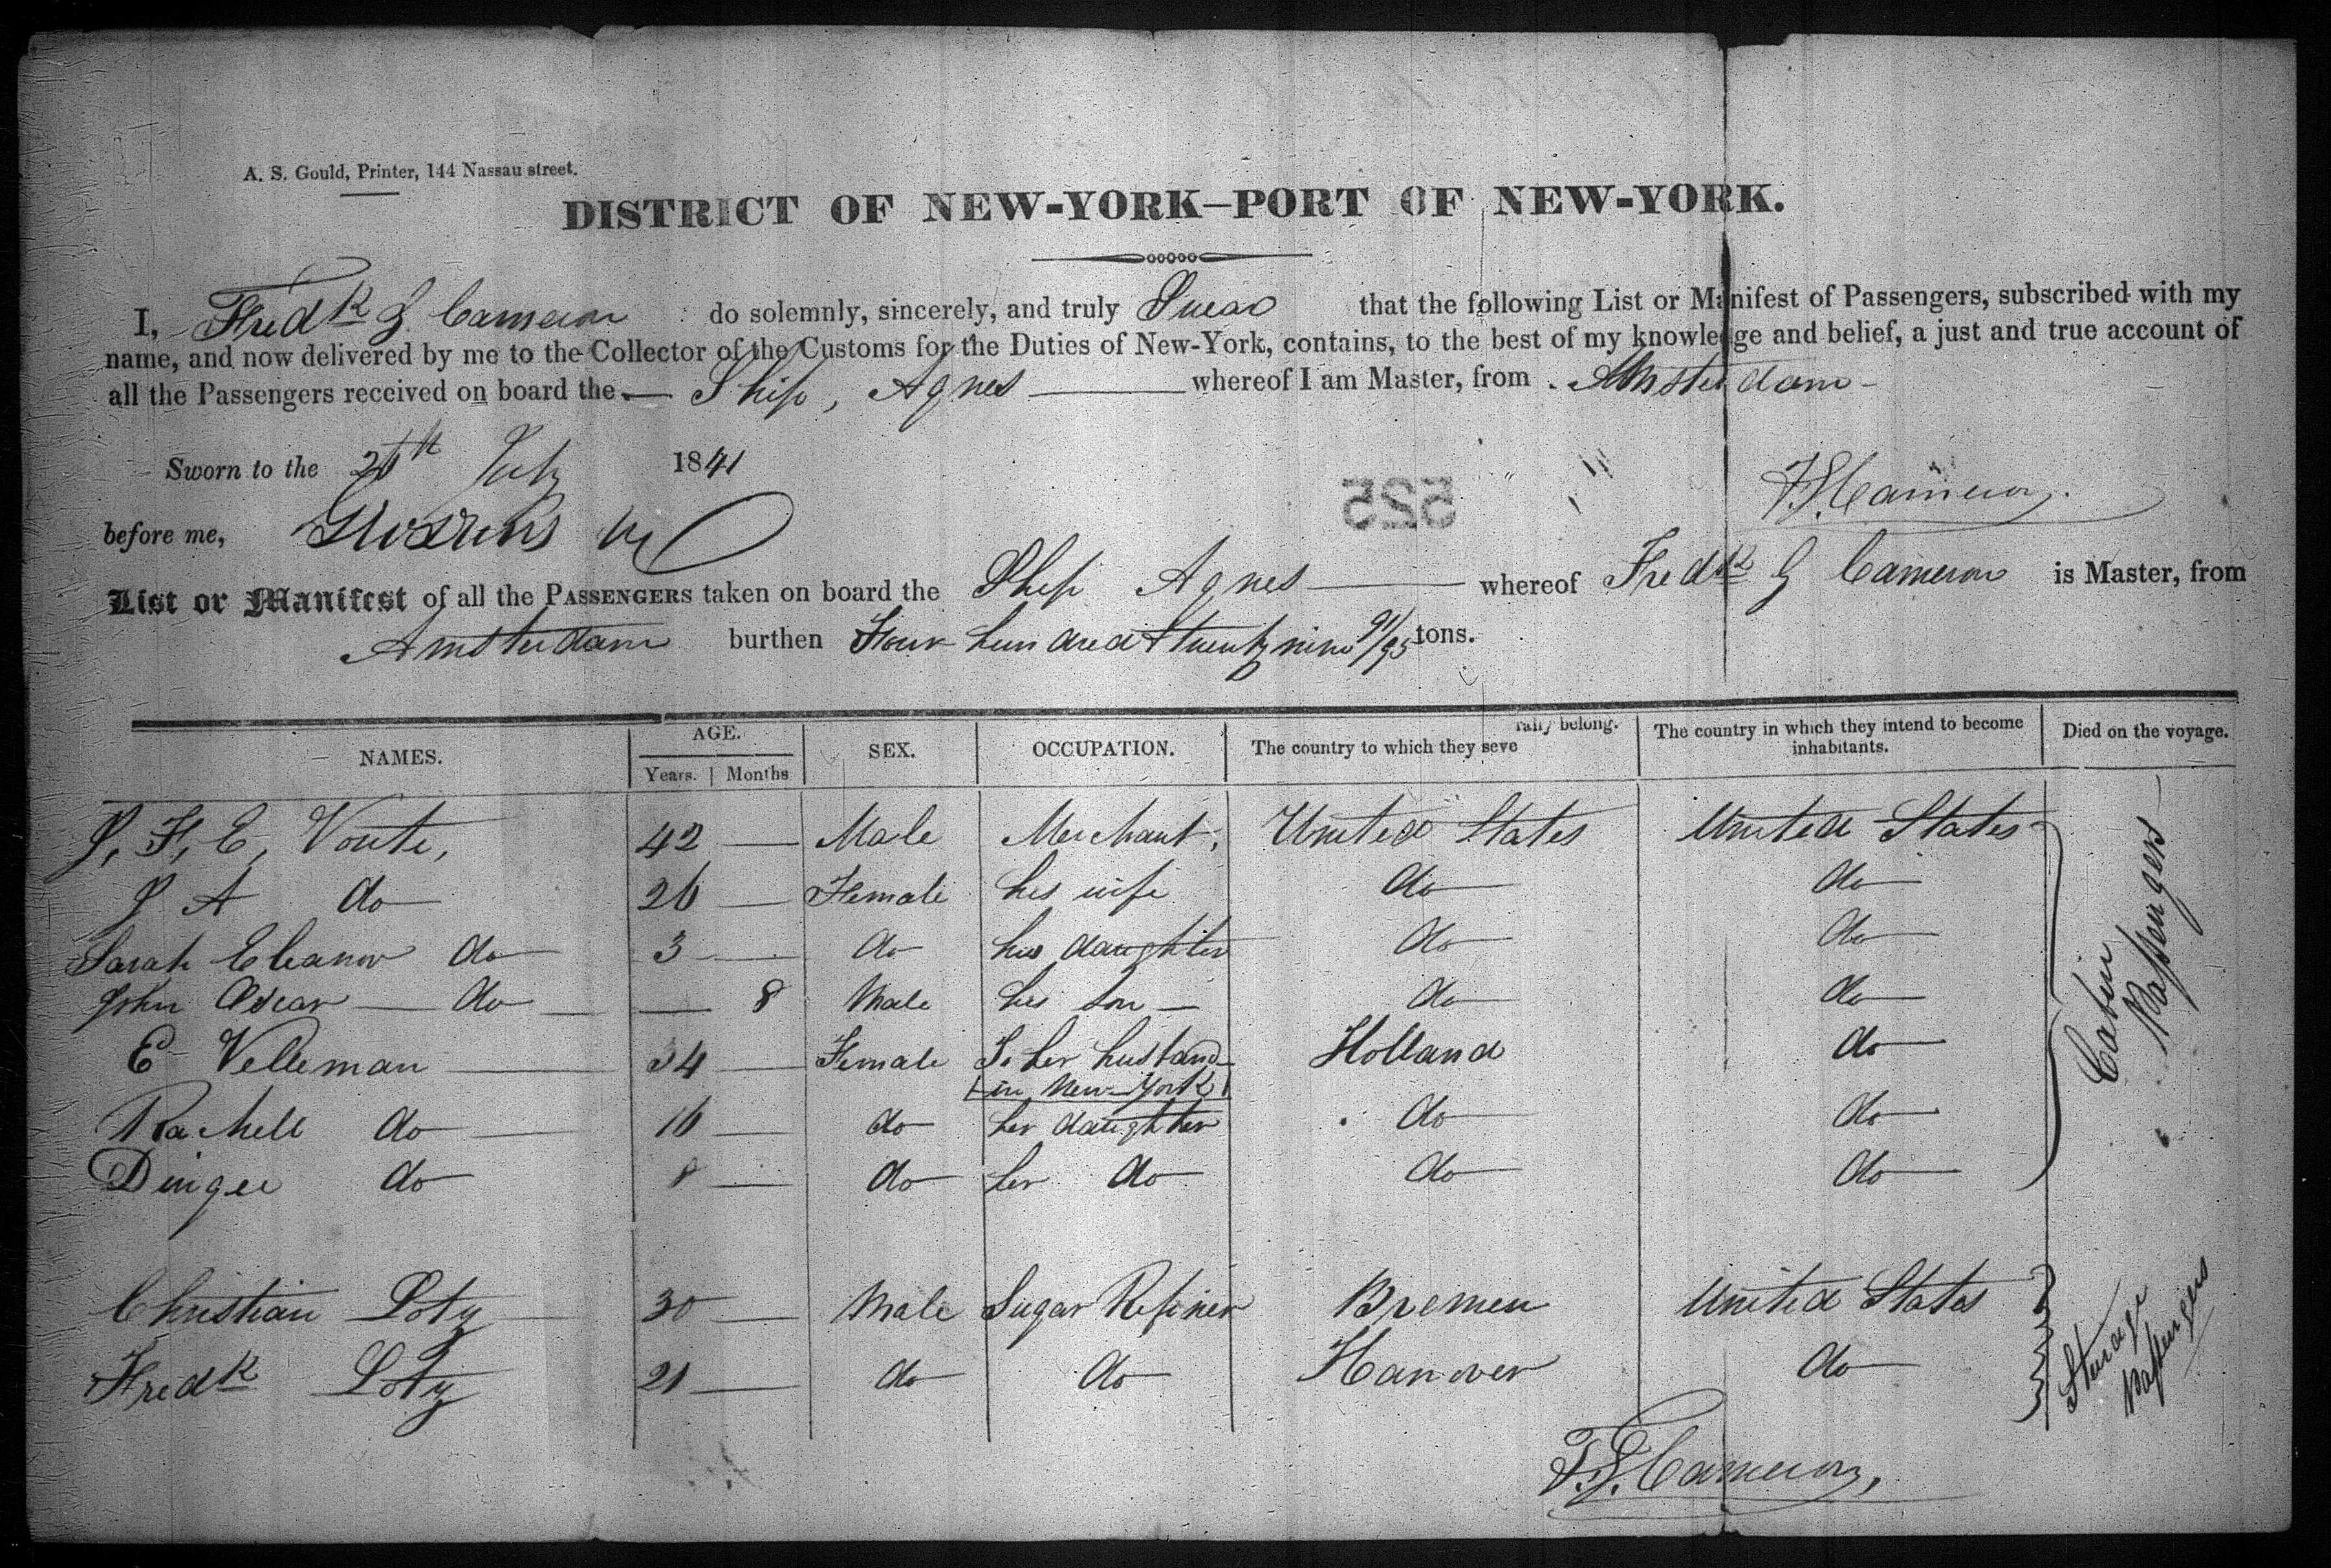 A. S. Gould, Printer, 144 Nassau street.
DISTRICT OF NEW-YORK—PORT OF NEW-YORK.
I, Fredk G Cameron do solemnly, sincerely, and truly Swear that the following List or Manifest of Passengers, subscribed with my
name, and now delivered by me to the Collector of the Customs for the Duties of New-York, contains, to the best of my knowledge and belief, a just and true account of
all the Passengers received on board the — Ship, Agnes — whereof I am Master, from Amsterdam —
Sworn to the July 1841
F G Cameron
before me,
525
List or Manifest of all the PASSENGERS taken on board the Ship Agnes — whereof Fredk G Cameron is Master, from
Amsterdam burthen Four hundred & twenty nine 91/95 tons.
NAMES. AGE. Years. Months SEX. OCCUPATION. The country to which they seve rally belong. The country in which they intend to become inhabitants. Died on the voyage.
J, F, E, Voute, 42 — Male Merchant, United States United States
J A do 26 — Female his wife do do
Sarah Eleanor do 3 — do his daughter do do
John Oscar — do — 8 Male his son — do do
E Velleman — 34 — Female To her husband in New-York Holland do
Rachell do — 16 — do her daughter do do
Dingee do 8 — do her do do do
Cabin Passengers
Christian Loty 30 — Male Sugar Refiner Bremen United States
Fredk Loty 21 — do do Hanover do
Sterage Passengers
F. G. Cameron,